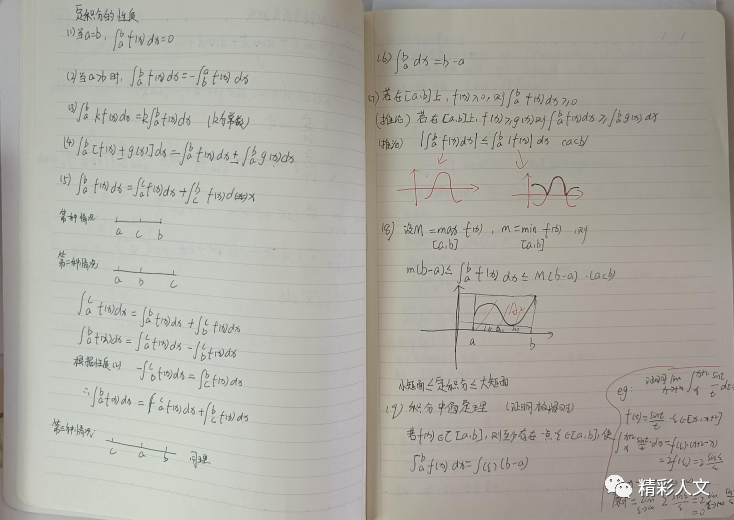 定积分的性质
(1) 当a=b, ∫_a^b f(x)dx=0
(2) 当a>b时, ∫_a^b f(x)dx=-∫_b^a f(x)dx
(3) ∫_a^b kf(x)dx=k∫_a^b f(x)dx (k为常数)
(4) ∫_a^b [f(x)±g(x)]dx=∫_a^b f(x)dx±∫_a^b g(x)dx
(5) ∫_a^b f(x)dx=∫_a^c f(x)dx+∫_c^b f(x)dx
第一种情况
a c b
第二种情况
a b c
∫_a^c f(x)dx=∫_a^b f(x)dx+∫_b^c f(x)dx
∫_a^b f(x)dx=∫_a^c f(x)dx-∫_b^c f(x)dx
根据性质(2) -∫_b^c f(x)dx=∫_c^b f(x)dx
∴∫_a^b f(x)dx=∫_a^c f(x)dx+∫_c^b f(x)dx
第三种情况
c a b 同理
(6) ∫_a^b dx=b-a
(7) 若在[a,b]上, f(x)≥0, 则∫_a^b f(x)dx≥0
(推论) 若在[a,b]上, f(x)≥g(x)则∫_a^b f(x)dx≥∫_a^b g(x)dx
(推论) |∫_a^b f(x)dx|≤∫_a^b |f(x)|dx (a<b)
(8) 设M=max f(x), m=min f(x), 则
[a,b] [a,b]
m(b-a)≤∫_a^b f(x)dx≤M(b-a) (a<b)
a b
小矩面≤定积分≤大矩面
(9) 积分中值定理
若f(x)∈C[a,b], 则至少存在一点ξ∈[a,b], 使
∫_a^b f(x)dx=f(ξ)(b-a)
eg: 证明lim ∫_x^{x+2} sint/t dt
f(t)=sint/t
=2f(ξ)=2 sinξ/ξ
=0
精彩人文